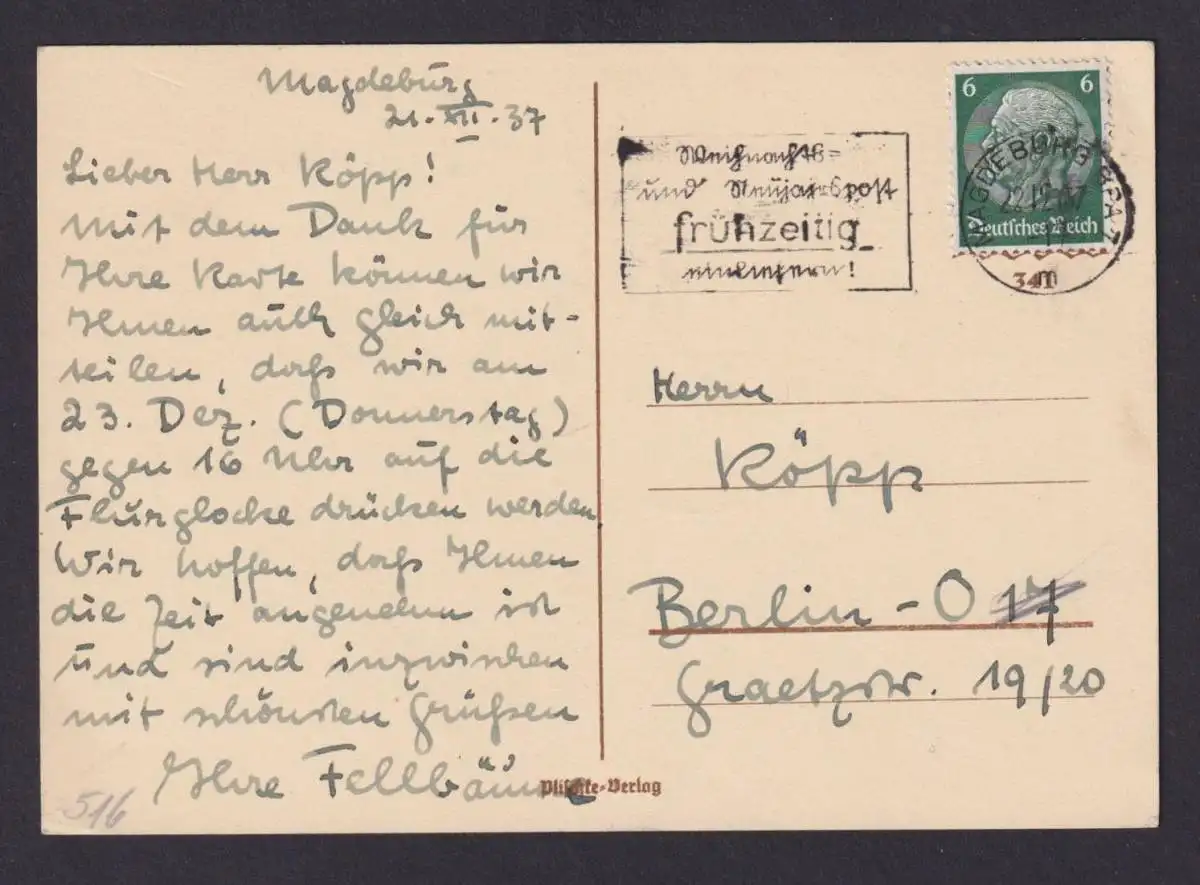 Magdeburg
21.XII.37
Lieber Herr Köpp!
Mit dem Dank für
Ihre Karte können wir
Ihnen auch gleich mit-
teilen, daß wir am
23. Dez. (Donnerstag)
gegen 16 Uhr auf die
Flurglocke drücken werden
Wir hoffen, daß Ihnen
die Zeit angenehm ist
und sind inzwischen
mit schönsten Grüßen
Ihre
516
Plischke-Verlag
Weihnachts-
und Neujahrspost
frühzeitig
einliefern!
6 6
Deutsches Reich
MAGDEBURG
22.12.37
m
Herrn
Köpp
Berlin-O 17
Graetzstr. 19/20